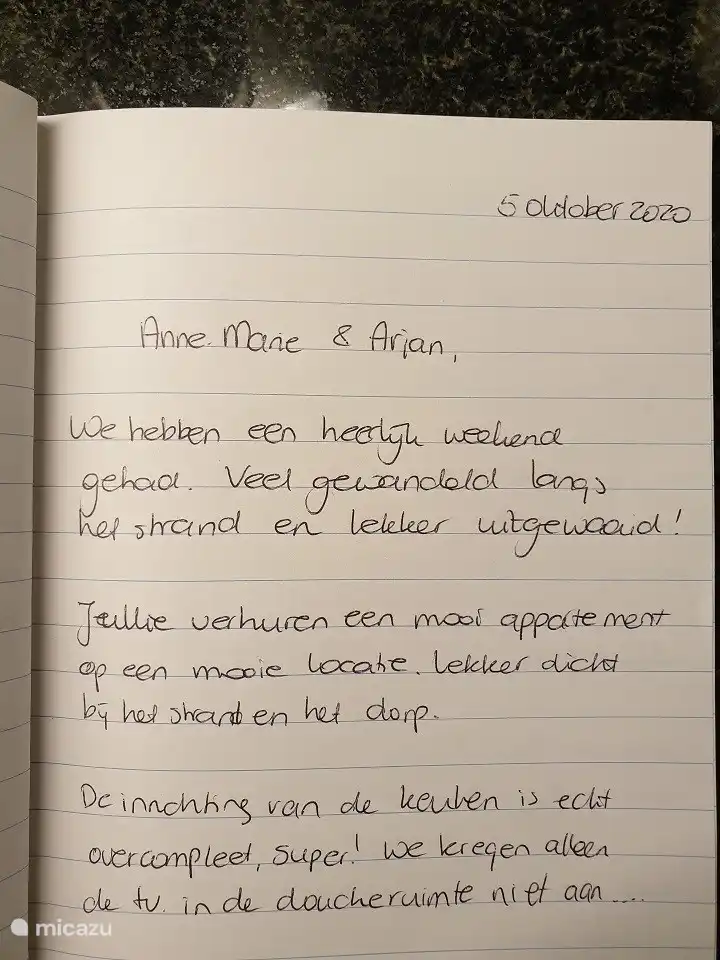 5 oktober 2020
Anne-Marie & Arjan,
We hebben een heerlijk weekend
gehad. Veel gewandeld langs
het strand en lekker uitgewaaid!
Jullie verhuren een mooi appartement
op een mooie locatie. Lekker dicht
bij het strand en het dorp.
De inrichting van de keuken is echt
overcompleet, super! We kregen alleen
de tv. in de doucheruimte niet aan....
micazu